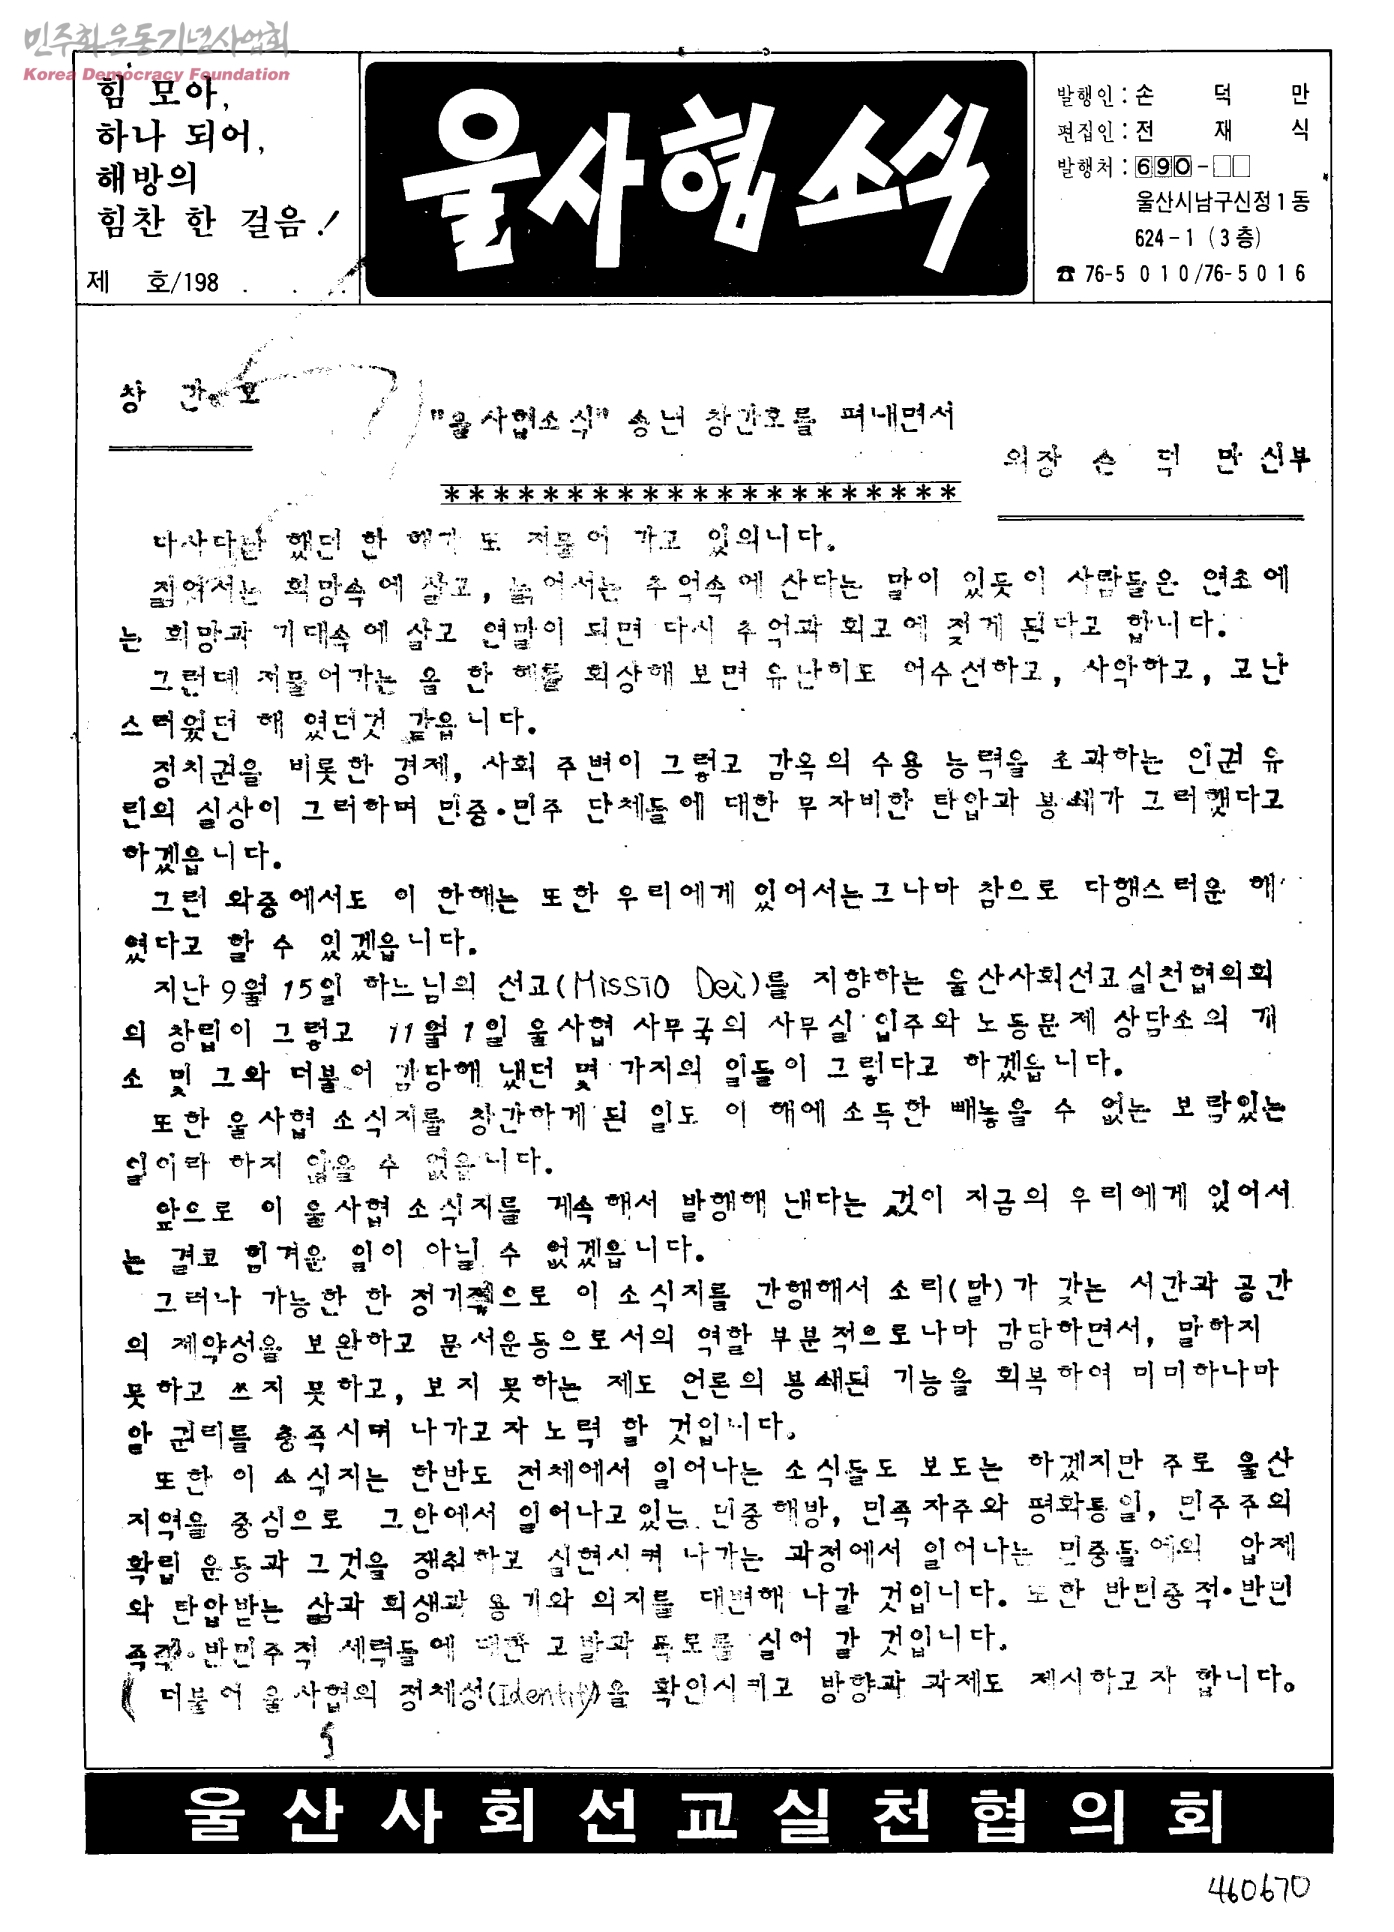 민주화운동기념사업회
Korea Democracy Foundation
힘 모아,
하나 되어,
해방의
힘찬 한 걸음!
제 호/198 . . .
울사협 소식
발행인 : 손 덕 만
편집인 : 전 재 식
발행처 : 690-□□
울산시남구신정1동
624-1 (3층)
☎ 76-5010/76-5016
창 간 호
"울사협소식" 송년 창간호를 펴내면서
의장 손 덕 만 신부
*********************
다사다난 했던 한 해가 또 저물어 가고 있읍니다.
젊어서는 희망속에 살고, 늙어서는 추억속에 산다는 말이 있듯이 사람들은 연초에
는 희망과 기대속에 살고 연말이 되면 다시 추억과 회고에 젖게 된다고 합니다.
그런데 저물어가는 올 한 해를 회상해 보면 유난히도 어수선하고, 사악하고, 고난
스러웠던 해 였던것 같읍니다.
정치권을 비롯한 경제, 사회 주변이 그렇고 감옥의 수용 능력을 초과하는 인권 유
린의 실상이 그러하며 민중·민주 단체들에 대한 무자비한 탄압과 봉쇄가 그러했다고
하겠읍니다.
그런 와중에서도 이 한해는 또한 우리에게 있어서는그나마 참으로 다행스러운 해
였다고 할 수 있겠읍니다.
지난 9월 15일 하느님의 선교(Missio Dei)를 지향하는 울산사회선교실천협의회
의 창립이 그렇고 11월 1일 울사협 사무국의 사무실 입주와 노동문제 상담소의 개
소 및 그와 더불어 감당해 냈던 몇 가지의 일들이 그렇다고 하겠읍니다.
또한 울사협 소식지를 창간하게 된 일도 이 해에 소득한 빼놓을 수 없는 보람있는
일이라 하지 않을 수 없읍니다.
앞으로 이 울사협 소식지를 계속해서 발행해 낸다는 것이 지금의 우리에게 있어서
는 결코 힘겨운 일이 아닐 수 없겠읍니다.
그러나 가능한 한 정기적으로 이 소식지를 간행해서 소리(말)가 갖는 시간과 공간
의 제약성을 보완하고 문서운동으로서의 역할 부분적으로나마 감당하면서, 말하지
못하고 쓰지 못하고, 보지 못하는 제도 언론의 봉쇄된 기능을 회복하여 미미하나마
알 권리를 충족시며 나가고자 노력 할 것입니다.
또한 이 소식지는 한반도 전체에서 일어나는 소식들도 보도는 하겠지만 주로 울산
지역을 중심으로 그안에서 일어나고있는 민중해방, 민족자주와 평화통일, 민주주의
확립 운동과 그것을 쟁취하고 실현시켜 나가는 과정에서 일어나는 민중들에의 압제
와 탄압받는 삶과 희생과 용기와 의지를 대변해 나갈 것입니다. 또한 반민중적·반민
족적·반민주적 세력들에 대한 고발과 폭로를 실어 갈 것입니다.
더불어 울사협의 정체성(Identity)을 확인시키고 방향과 과제도 제시하고자 합니다.
울산사회선교실천협의회
460670